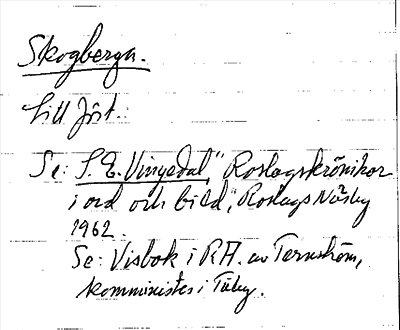 Skogberga.
Litt först:
Se: S. E. Vingedal, "Roslagskrönikor
i ord och bild", Roslags Näsby
1962.
Se: Visbok i RA. av Ternström,
komminister i Täby.